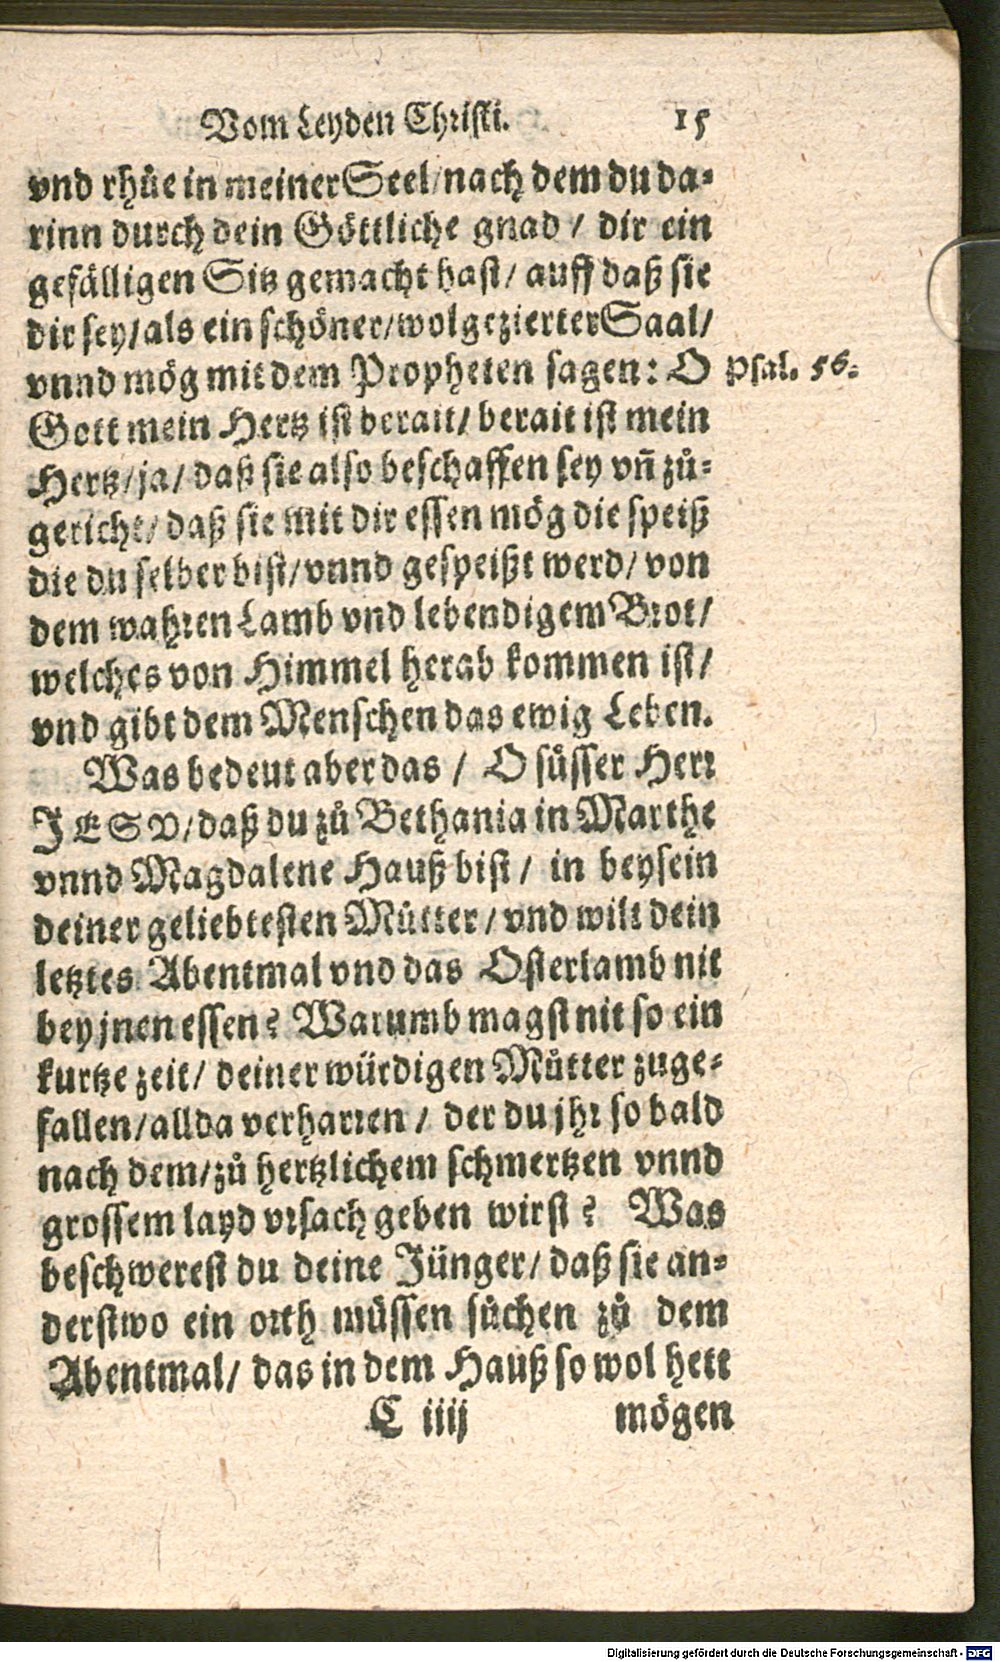 Vom Leyden Christi. 15
vnd rhůe in meiner Seel/nach dem du da-
rinn durch dein Göttliche gnad / dir ein
gefälligen Sitz gemacht hast/ auff daß sie
dir sey/als ein schöner/wolgezierter Saal/
vnnd mög mit dem Propheten sagen: O Psal. 56.
Gott mein Hertz ist berait/ berait ist mein
Hertz/ja/ daß sie also beschaffen sey vñ zů-
gericht/ daß sie mit dir essen mög die speiß
die du selber bist/vnnd gespeißt werd/ von
dem wahren Lamb vnd lebendigem Brot/
welches von Himmel herab kommen ist/
vnd gibt dem Menschen das ewig Leben.
Was bedeut aber das / O sůsser Herr
JESV/daß du zů Bethania in Marthe
vnnd Magdalene Hauß bist / in beysein
deiner geliebtesten Můtter / vnd wilt dein
letztes Abentmal vnd das Osterlamb nit
bey jnen essen? Warumb magst nit so ein
kurtze zeit/ deiner würdigen Můtter zuge-
fallen/allda verharren / der du jhr so bald
nach dem/zů hertzlichem schmertzen vnnd
grossem layd vrsach geben wirst? Was
beschwerest du deine Jünger/ daß sie an-
derstwo ein orth müssen sůchen zů dem
Abentmal/ das in dem Hauß so wol hett
C iiij mögen
Digitalisierung gefördert durch die Deutsche Forschungsgemeinschaft - DFG